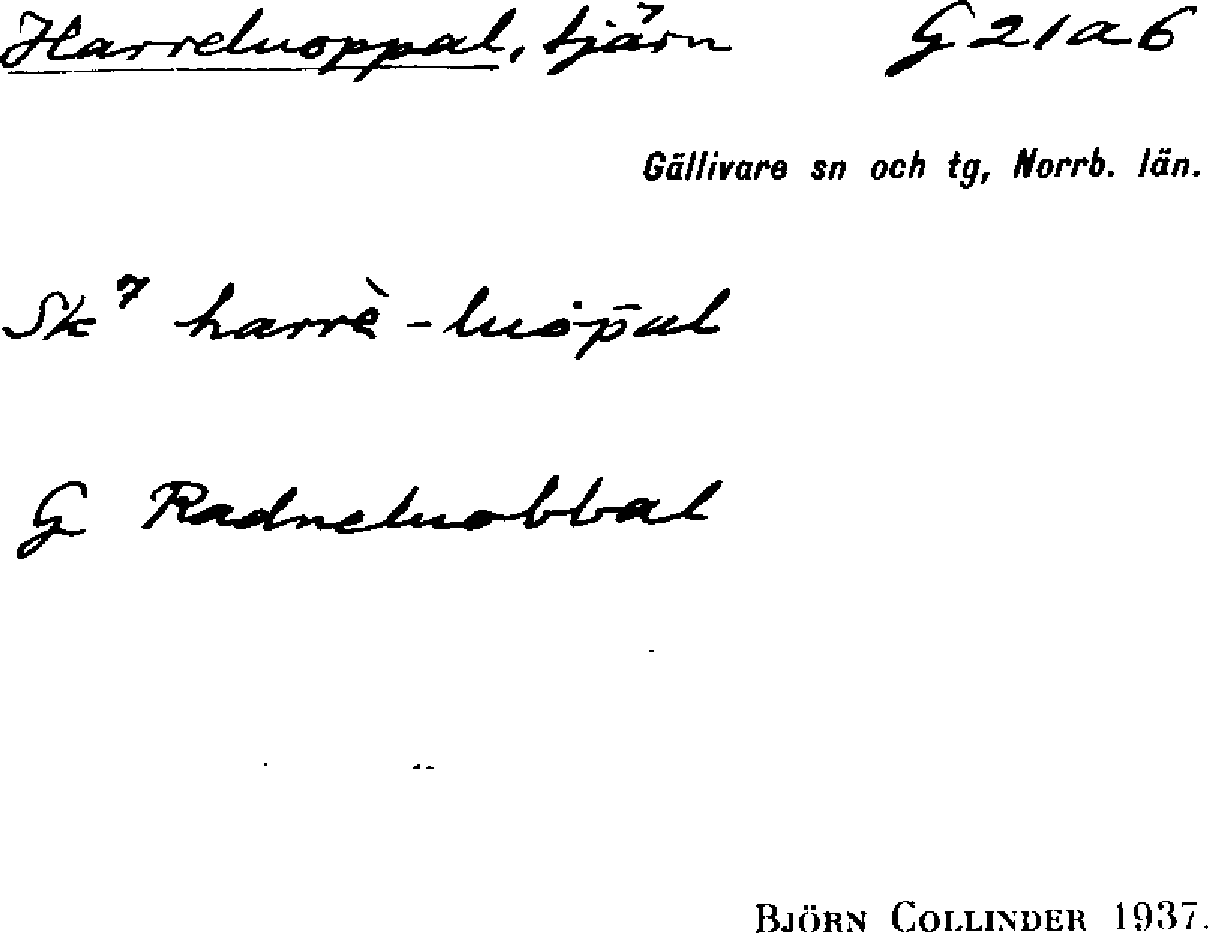 Harreluoppal, tjärn G21a6
Gällivare sn och tg, Norrb. län.
Sk⁷ harrè-luȯp̄al
G Radneluobbal
BJÖRN COLLINDER 1937.